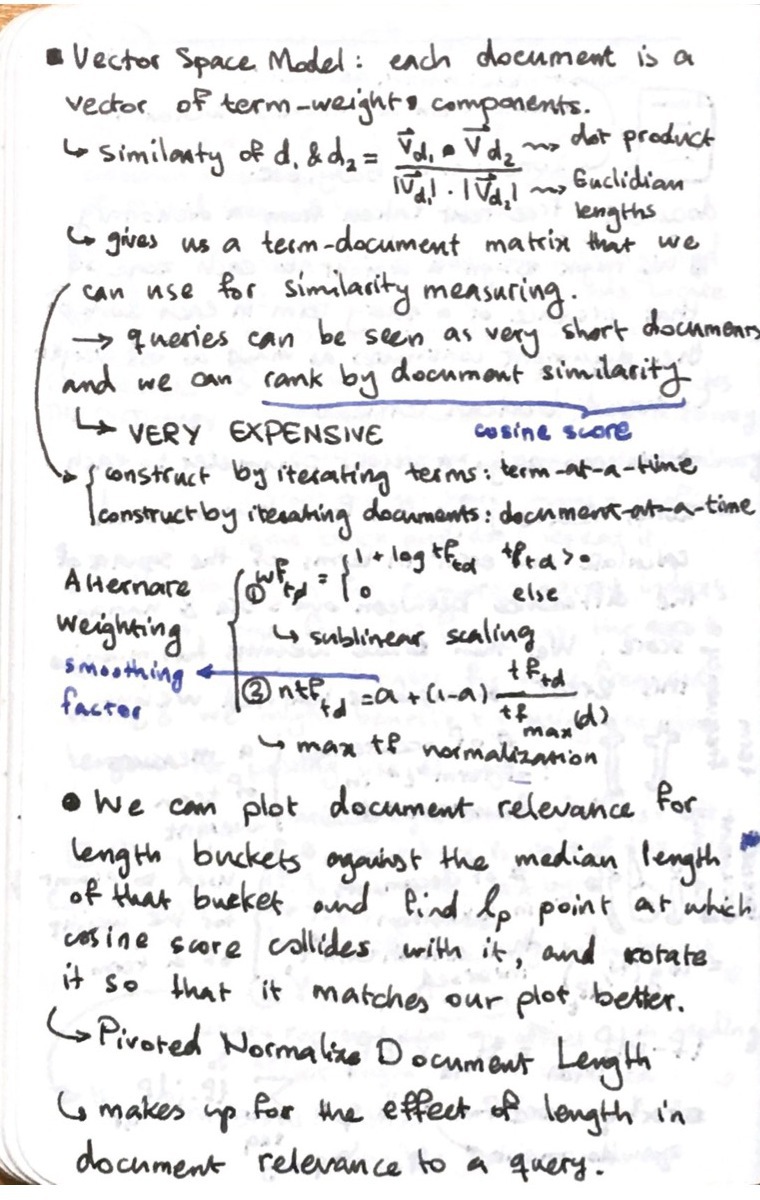 ▪ Vector Space Model: each document is a
vector of term-weights components.
↳ Similarity of d₁ & d₂ = V⃗d₁ • V⃗d₂ / |V⃗d₁| · |V⃗d₂| ⇝ dot product
⇝ Euclidian
lengths
↳ gives us a term-document matrix that we
can use for similarity measuring.
→ queries can be seen as very short documents
and we can rank by document similarity
↳ VERY EXPENSIVE cosine score
construct by iterating terms: term-at-a-time
construct by iterating documents: document-at-a-time
Alternate
weighting
① wf_td = { 1 + log tf_td tf_td > 0
0 else
↳ sublinear scaling
smoothing
factor
② ntf_td = a + (1-a) tf_td / tf_max(d)
↳ max tf normalization
• We can plot document relevance for
length buckets against the median length
of that bucket and find lp point at which
cosine score collides with it, and rotate
it so that it matches our plot better.
↳ Pivoted Normalize Document Length
↳ makes up for the effect of length in
document relevance to a query.